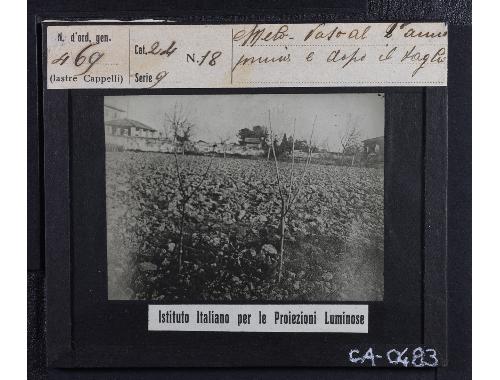 N. d'ord. gen.
469
(lastre Cappelli)
Cat. 24
Serie 9
N. 18
Melo - Vaso al 2° anno
prima e dopo il taglio
Istituto Italiano per le Proiezioni Luminose
CA-0483